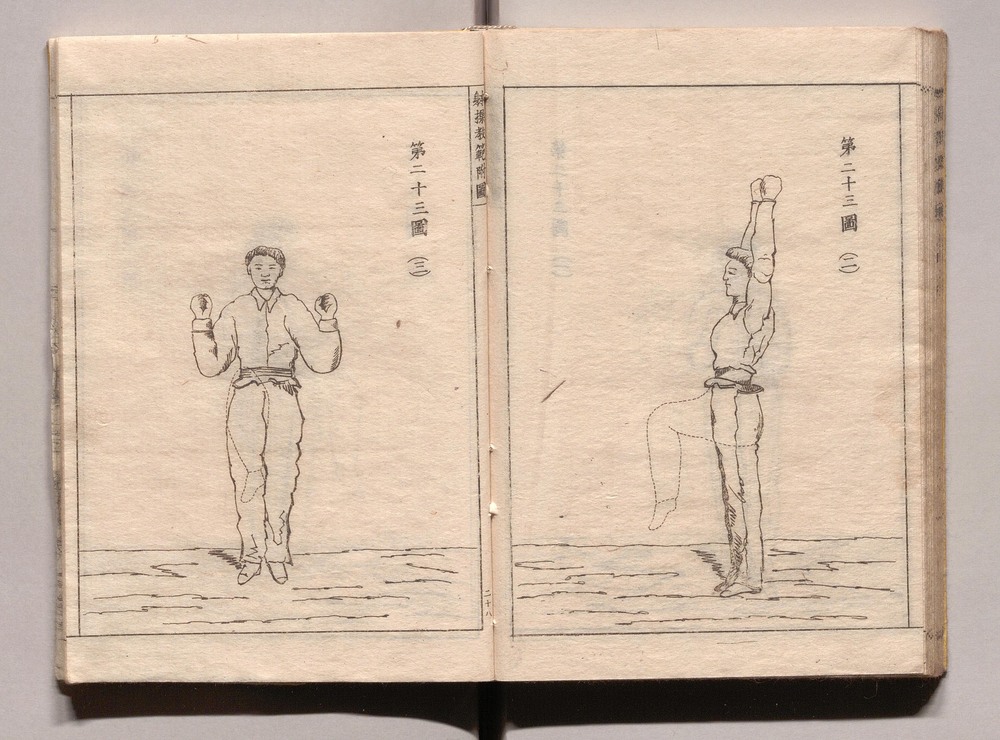 第二十三圖 (二)
躰操教範附圖
第二十三圖 (三)
二十八